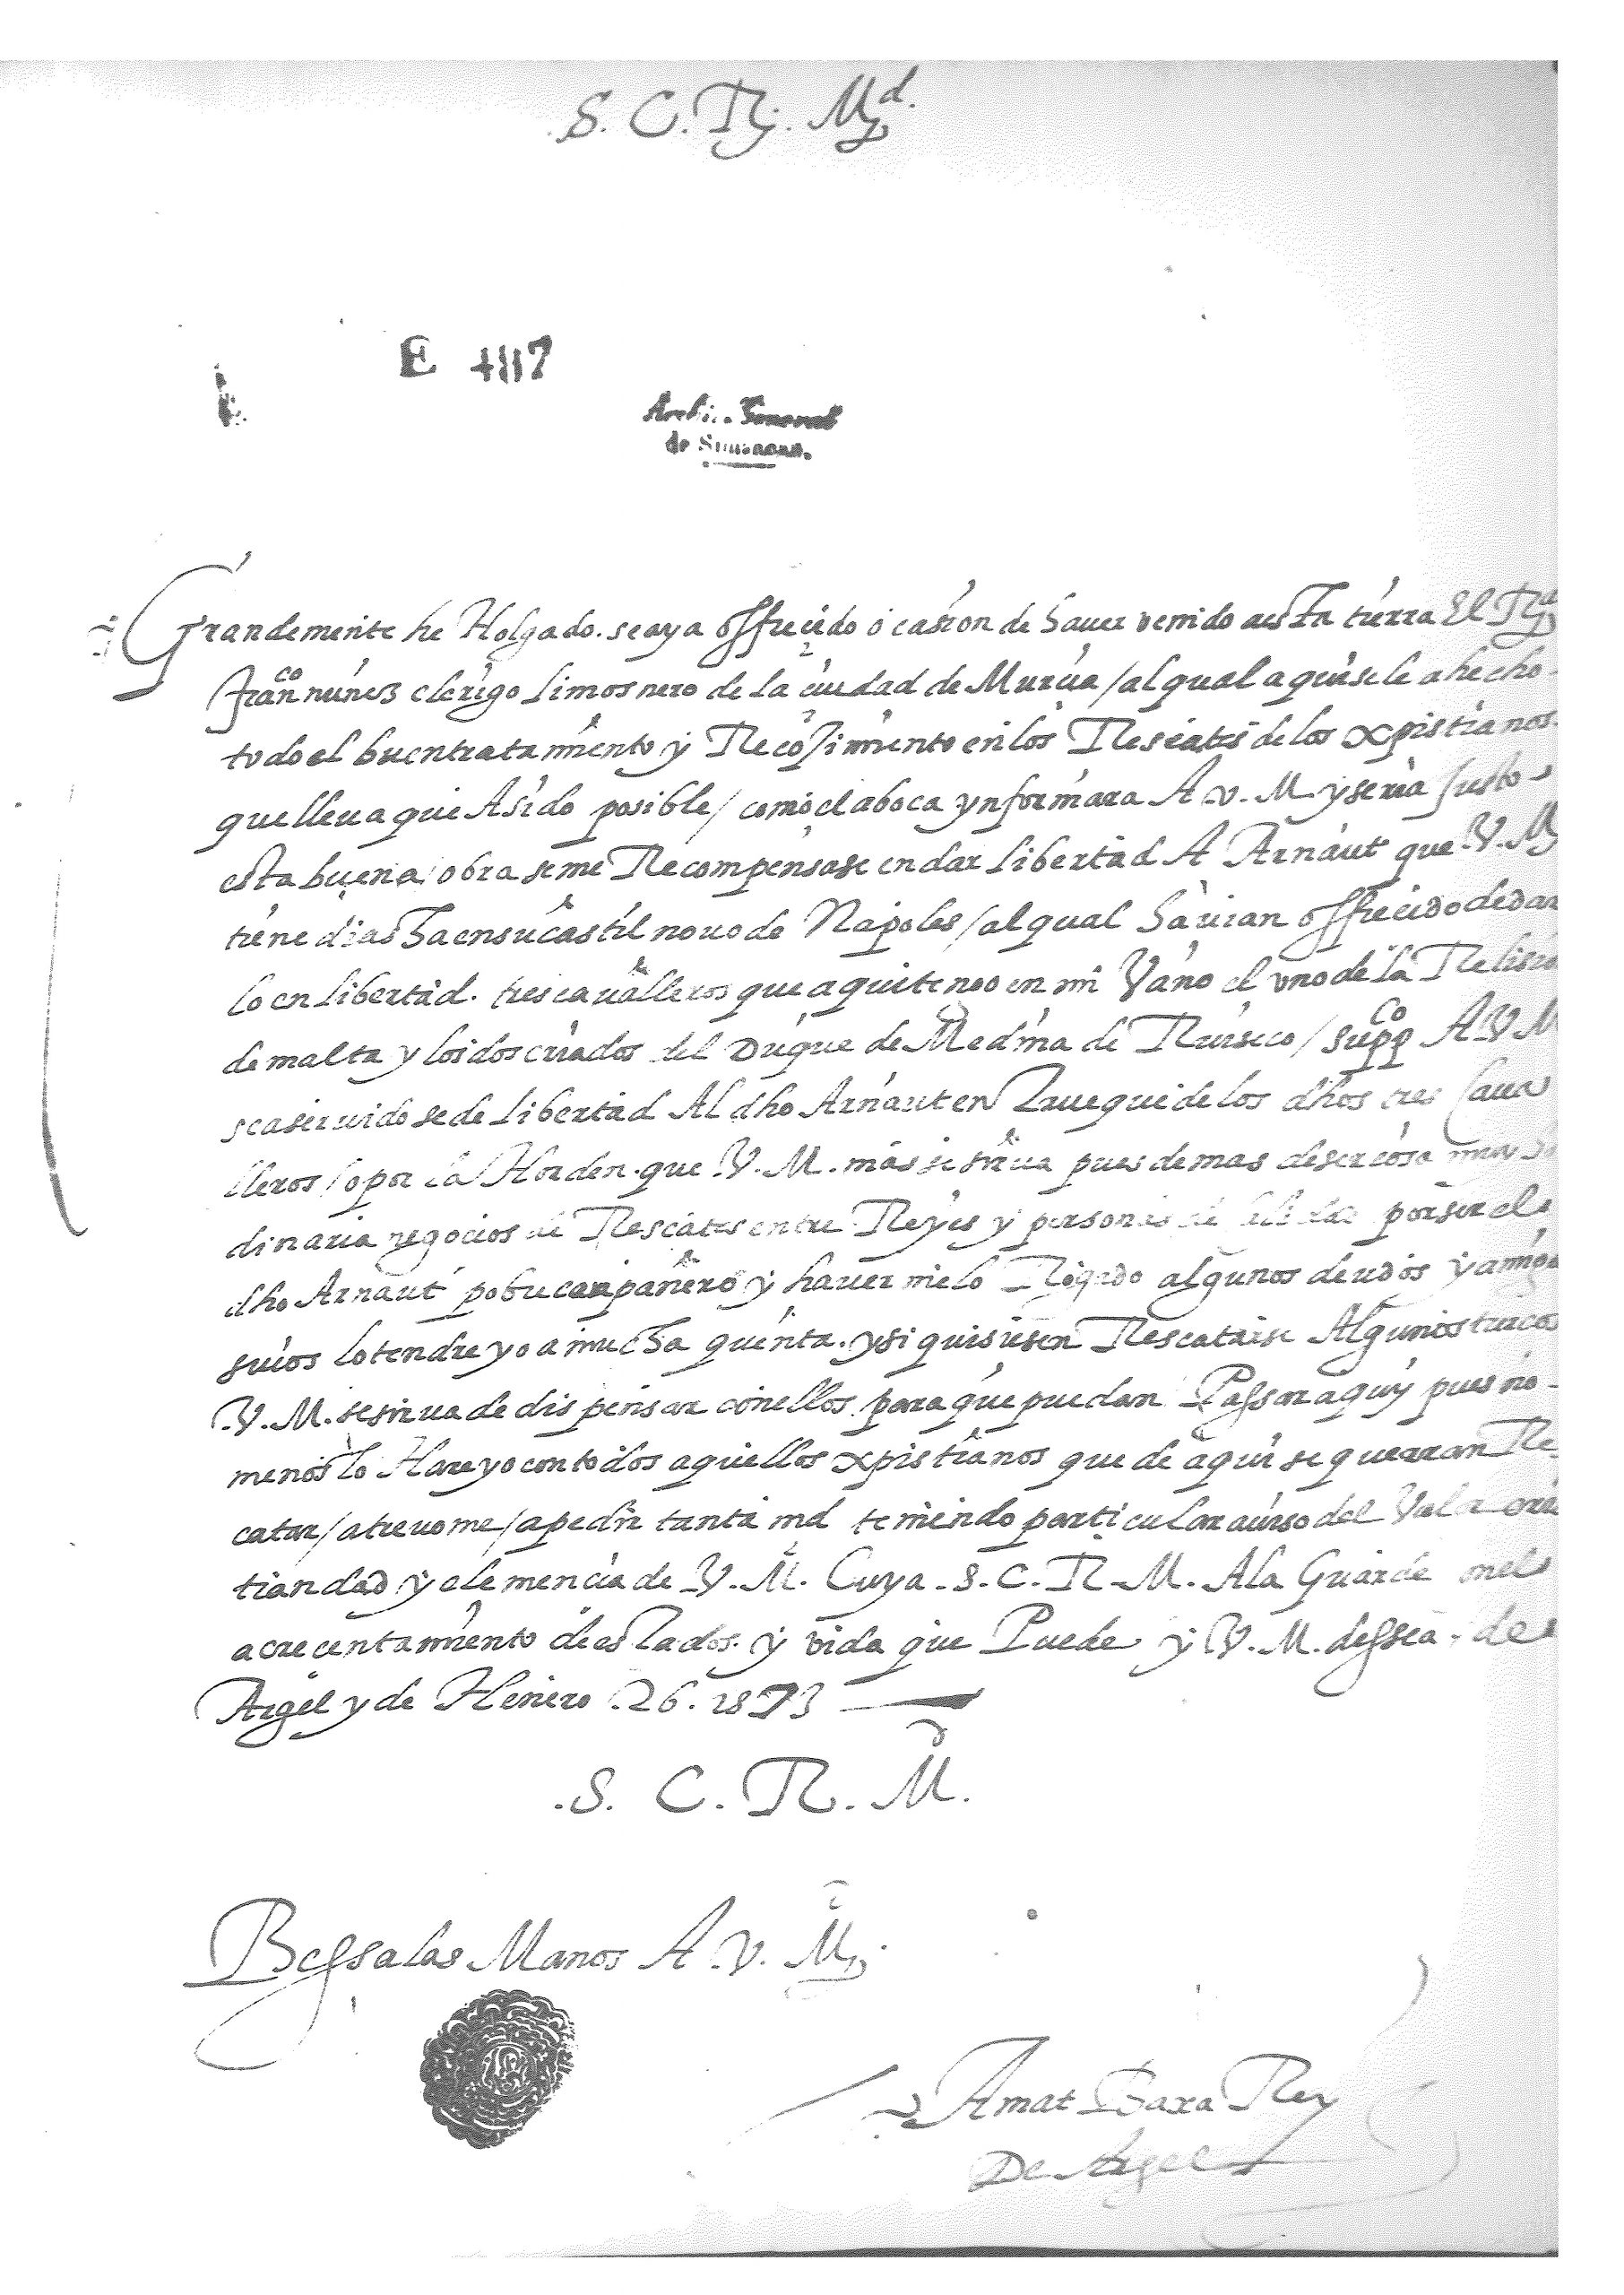 S. C. R. Md.
E 487
Archivo General
de Simancas.
Grandemente he Holgado. se aya offrecido ocasion de haver venido a esta tierra El Rdo
Franco núnez clerigo limosnero de la ciudad de Murcia / al qual aqui se le a hecho
todo el buen tratamiento y Recogimiento en los Rescates de los xpistianos
que lleva que Asido posible / como el a boca ynformara A V. M. y seria Justo
esta buena obra se me Recompensase en dar libertad A Arnaut que V. M.
tiene dias ha en su castil novo de Napoles / al qual havian offrecido de dar
lo en libertad. tres cavalleros que aqui tengo en mi Vano el uno de la Relisio
de malta y los dos criados del Duque de Medina de Ruiseco / suppco A V M
sea servido se de libertad Al dho Arnaut en Trueque de los dhos tres Cava
lleros / o por la Horden. que V. M. mas se sirva pues demas de ser cosa muy
dinaria negocios de Rescates entre Reyes y personas de porser el
dho Arnaut companero y haver melo Rogado algunos deudos y amigos
suios lo tendre yo a mucha quenta. y si quisiesen Rescatarse Algunos turcos
V. M. se sirva de dispensar conellos para que puedan Passar aquy pues no
menos lo Hare yo con todos aquellos xpistianos que de aqui se querran Re
catar / atrevome / a pedir tanta md teniendo particular aviso del Valor cris
tiandad y clemencia de V. M. Cuya S. C. R. M. Ala Guarde
acrecentamiento de estados. y vida que Puede y V. M. dessea. de
Argel y de Henero .26. 1573
S. C. R. M.
Bessa las Manos A V. M.
Amat Baxa Rey
De Argel